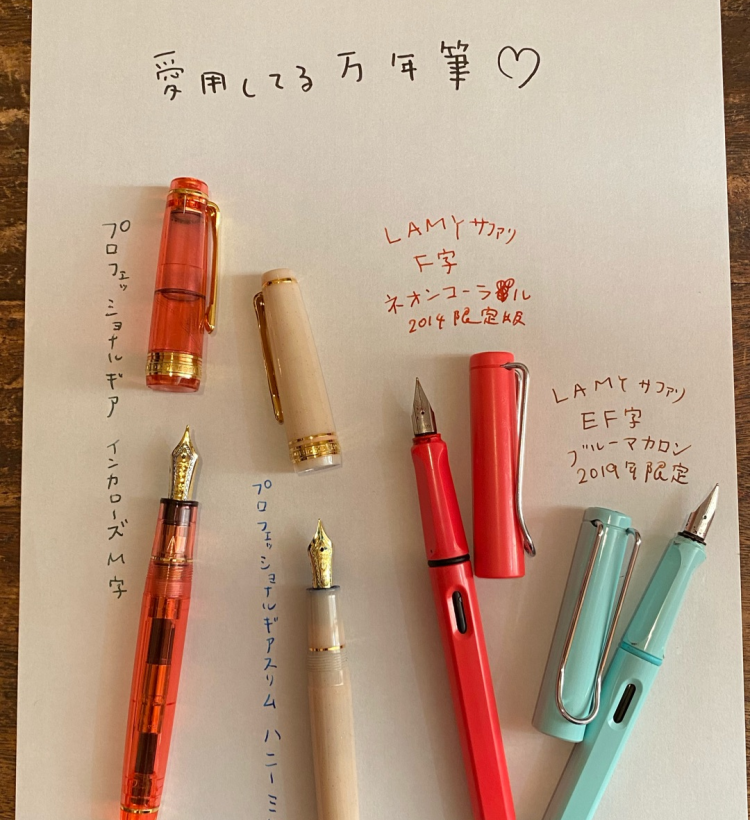 愛用してる万年筆♡
プロフェッショナルギア インカローズ M字
プロフェッショナルギアスリム ハニーミ
LAMYサファリ
F字
ネオンコーラル
2014限定版
LAMYサファリ
EF字
ブルーマカロン
2019年限定